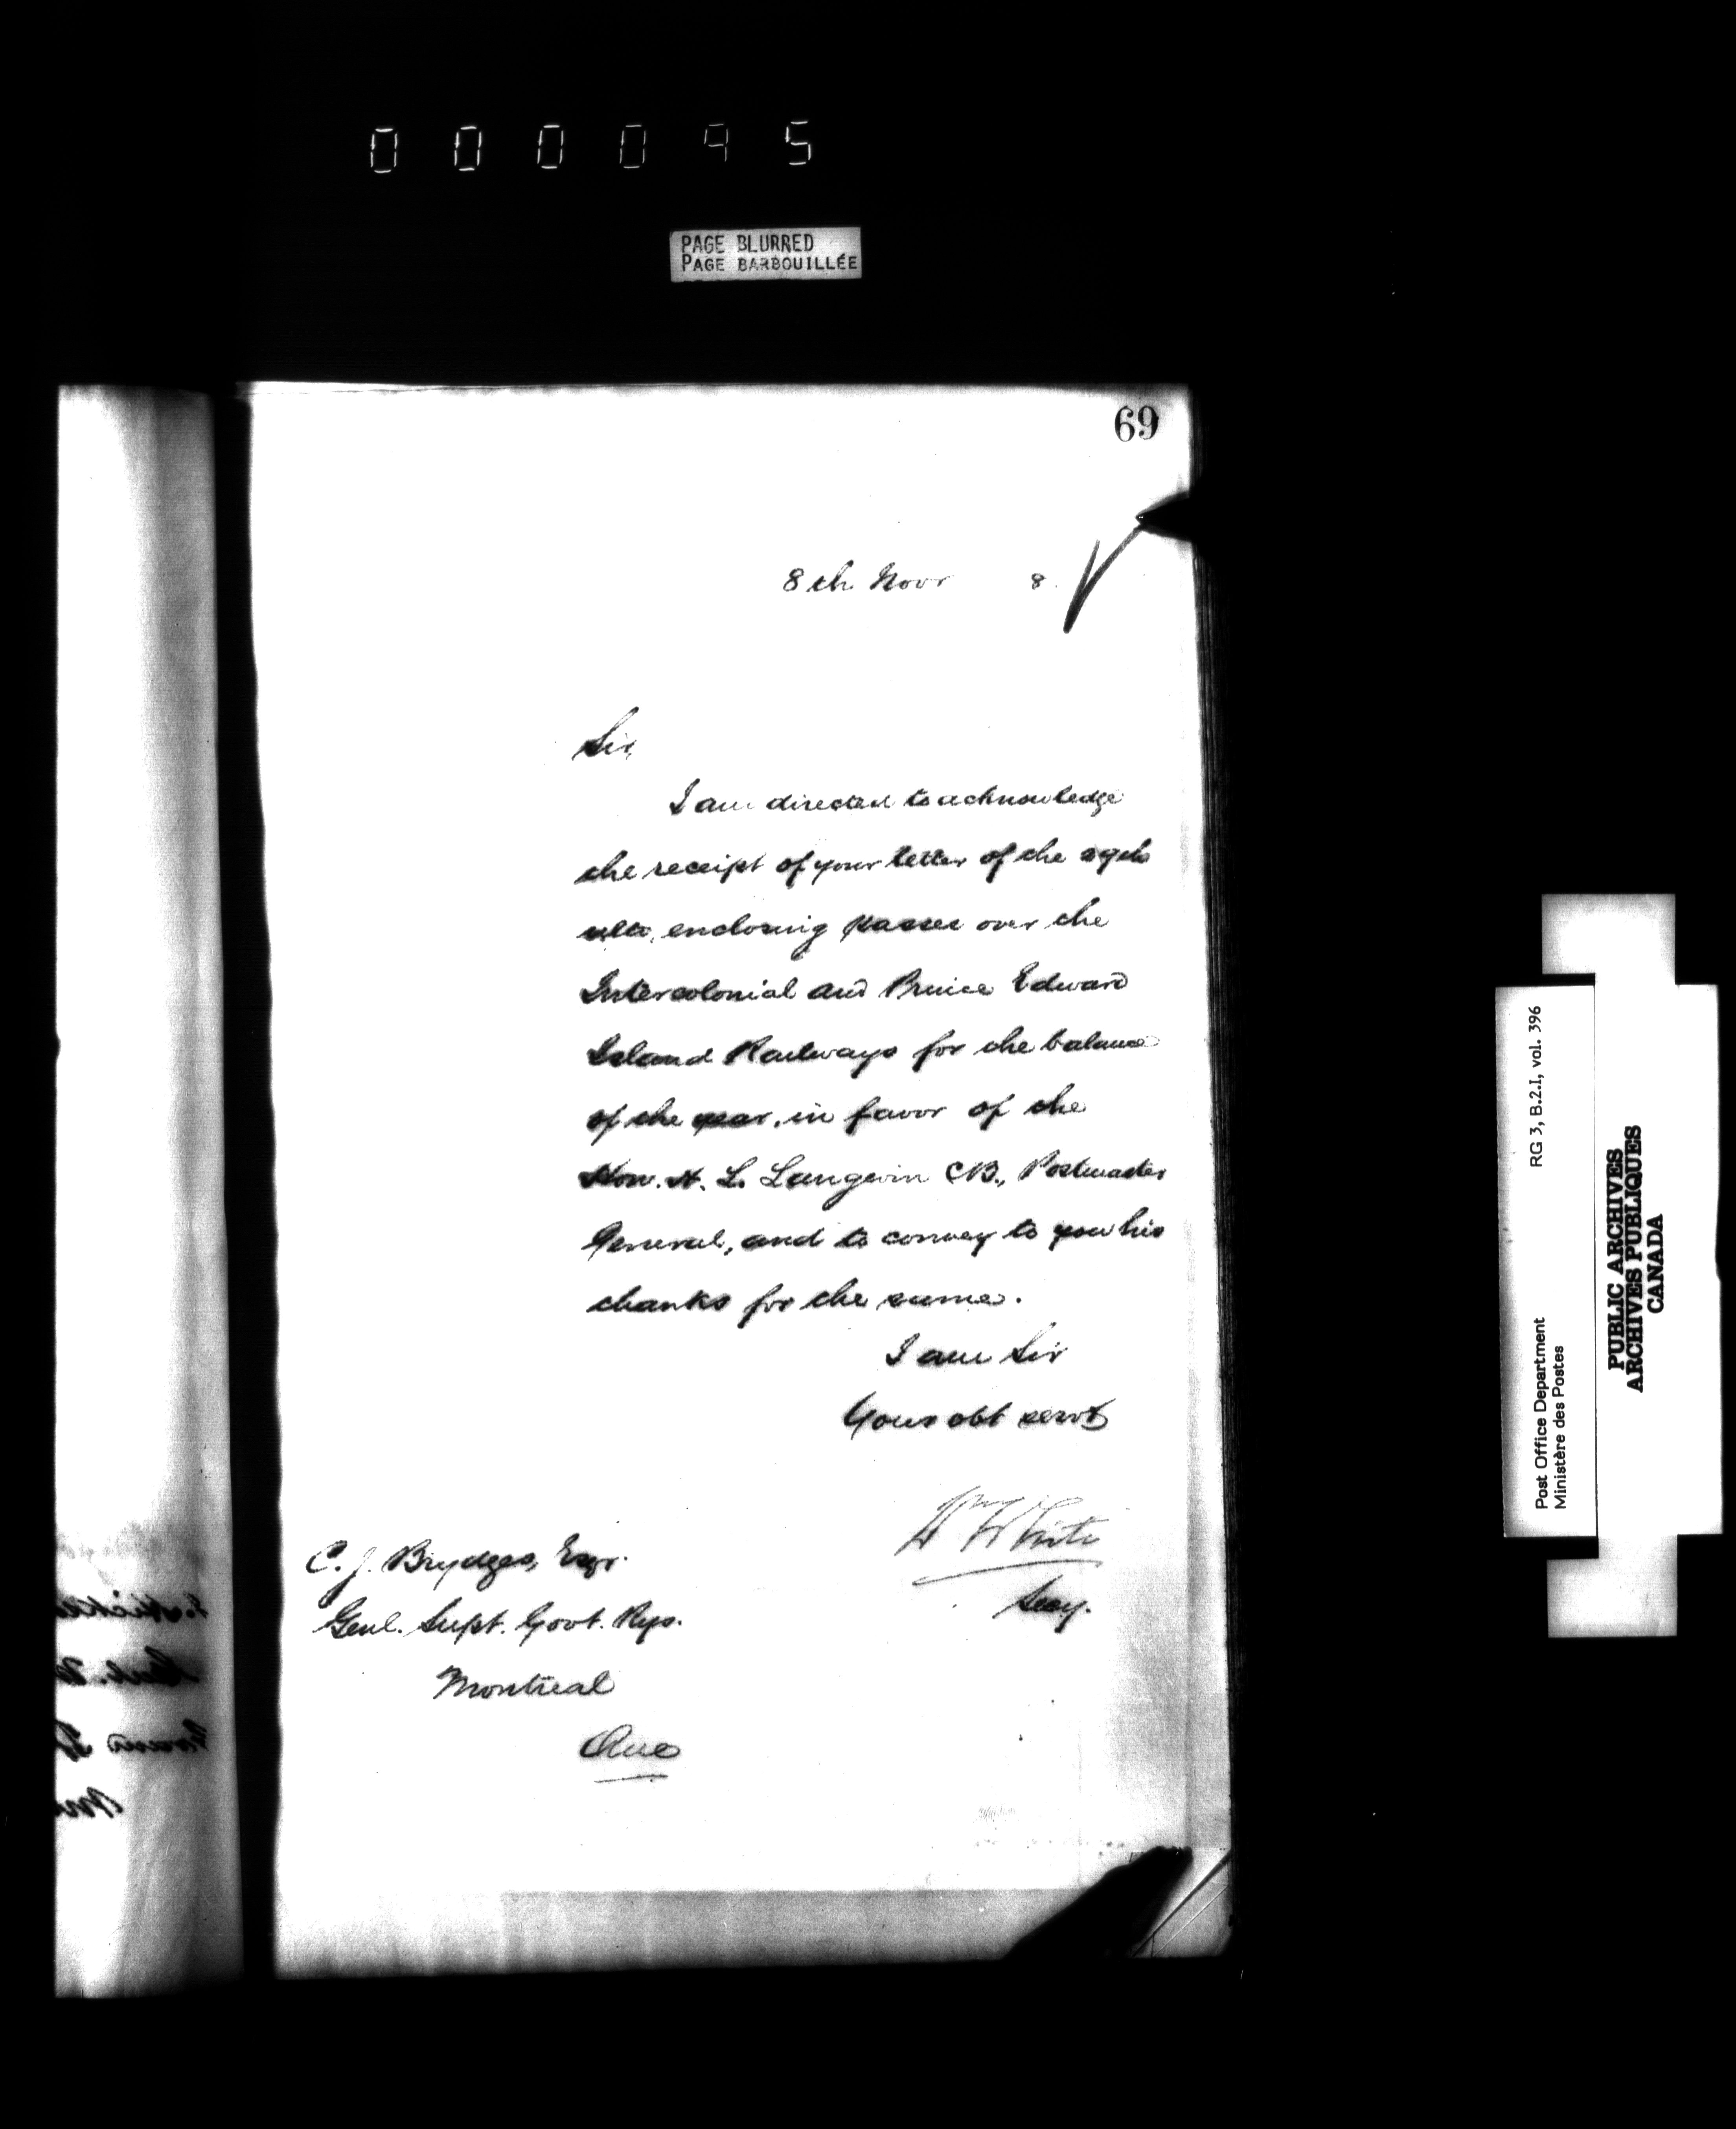 000095
PAGE BLURRED
PAGE BARBOUILLÉE
69
8th Novr 8.
Sir,
I am directed to acknowledge
the receipt of your letter of the 29th
ulto, enclosing passes over the
Intercolonial and Prince Edward
Island Railways for the balance
of the year, in favor of the
Hon. H. L. Langevin CB., Postmaster
General, and to convey to you his
thanks for the same.
I am Sir
Your obt servt
Wm White
Secy.
C. J. Brydges, Esqr.
Genl. Supt. Govt. Rys.
Montreal
Que
Post Office Department
Ministère des Postes
RG 3, B.2.I, vol. 396
PUBLIC ARCHIVES
ARCHIVES PUBLIQUES
CANADA